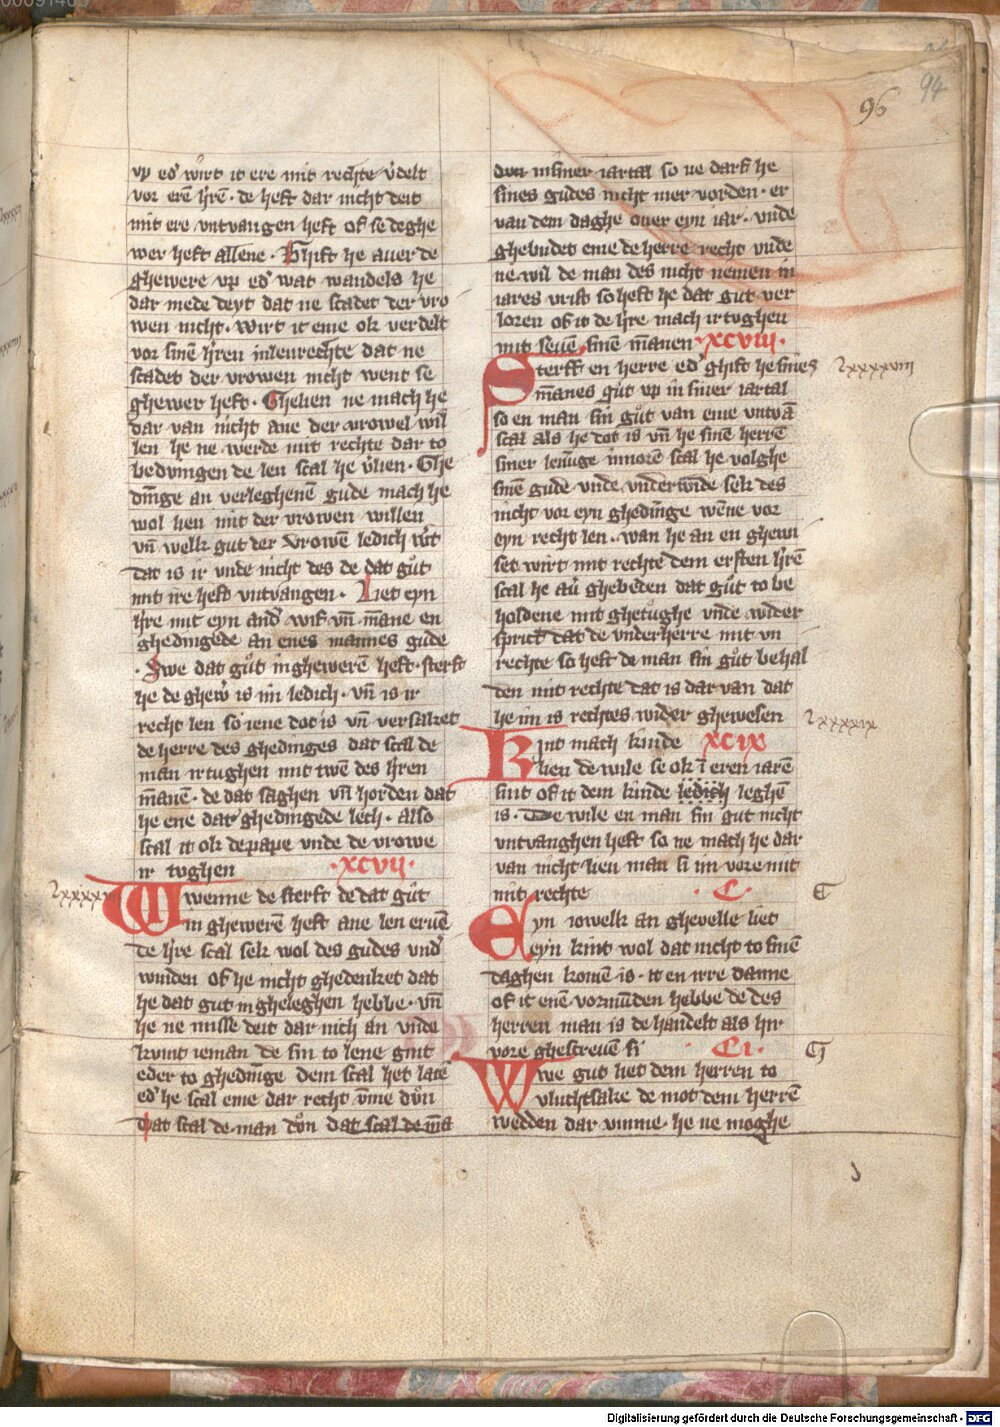 96
94
vp edʼ wirt it ere mit rechte v̓delt
vor erē h̓rē · de heft dar nicht deit
mit ere vntvangen heft of se deghe
wer heft allene · Ghift he auer de
ghewere vp edʼ wat wandels he
dar mede deyt dat ne scadet der vro
wen nicht · wirt it eme ok verdelt
vor sinē h̓ren inlenrechte dat ne
scadet der vrowen nicht went se
ghewer heft · Ghelien ne mach he
dar van nicht ane der vrowen wil
len he ne werde mit rechte dar to
bedvingen de len scal he v̓lien · Ghe
dīge an verleghenē gude mach he
wol lien mit der vrowen willen
vn̄ welk gut der vrowē ledich w̓t
dat is ir vnde nicht des de dat gůt
mit ire hefd vntvangen · Liet eyn
h̓re mit eyn andʼ wif vn̄ m̄ane en
ghedingede an enes mannes gude
· Swe dat gůt in ghewerē heft · sterft
he de ghewʼ is im ledich · vn̄ is ir
recht len so iene dot is vn̄ versaket
de herre des ghedinges dat scal de
man irtughen mit twē des h̓ren
m̄anē · de dat saghen vn̄ horden dat
he ene dat ghedingede lech · also
scal it ok de pape vnde de vrowe
ir tvghen · xcvii ·
Swenne de sterft de dat gůt
in ghewerē heft ane len eruē
De h̓re scal sek wol des gudes vndʼ
winden of he nicht ghedenket dat
he dat gut in gheleghen hebbe · vn̄
he ne misse deit dar nich an vnde
kvmt ieman de sin to lene gint
eder to ghedīge dem scal het latē
edʼ he scal eme dar recht v̄me důn
Dat scal de man důn dat scal de m̄a
don in siner iartal so ne darf he
sines gudes nicht mer vorden · er
van dem daghe ouer eyn iar · vnde
ghebudet eme de herre recht vnde
ne wil de man des nicht nemen in
iares vrist so heft he dat gůt ver
loren of it de h̓re mach irtvghen
mit seuē sinē m̄anen · xcviii ·
Sterft en herre edʼ ghift he sines
m̄anes gůt vp in siner iartal
so en man sin gůt van eme vntvā
scal als he dot is vn̄ he sinē herrē
siner lenn̄uge innorē scal he volghe
sinē gude vnde vnderwīde sek des
nicht vor eyn ghedīnge wēne vor
eyn recht len · wan he an en ghewi
set wirt mit rechte dem ersten h̓rē
scal he auʼ ghebeden dat gůt to be
holdene mit ghetůghe vnde wider
sprict dat de vnderherre mit vn
rechte so heft de man sin gůt behal
den mit rechte dat is dar van dat
he im is rechtes wider ghewesen
Kint mach kinde xcix
lien de wile se ok ī eren iarē
sint of it dem kinde ledich leghē
is · De wile en man sin gut nicht
vntvanghen heft so ne mach he dar
van nicht lien man li im vore mit
mit rechte · C ·
Eyn iowelk an ghevelle liet
eyn kint wol dat nicht to sinē
daghen komē is · it en irre danne
of it enē vormūden hebbe de des
herren man is de handelt als hir
vore ghescreuē si · Ci ·
Swe gut liet dem herren to
vluchtsake de mot dem herrē
wedden dar vmme · he ne moghe
Digitalisierung gefördert durch die Deutsche Forschungsgemeinschaft - DFG